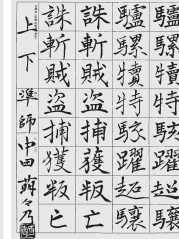 驢騾犢特駭躍超驤
驢騾犢特駭躍超驤
誅斬賊盗捕獲叛亡
誅斬賊盗捕獲叛亡
上下 準師 中田萌々乃